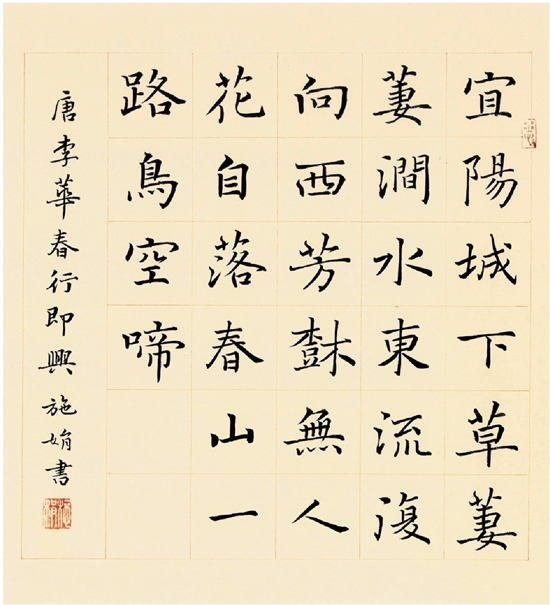 宜陽城下草萋
萋澗水東流復
向西芳樹無人
花自落春山一
路鳥空啼
唐李華春行即興 施娟書